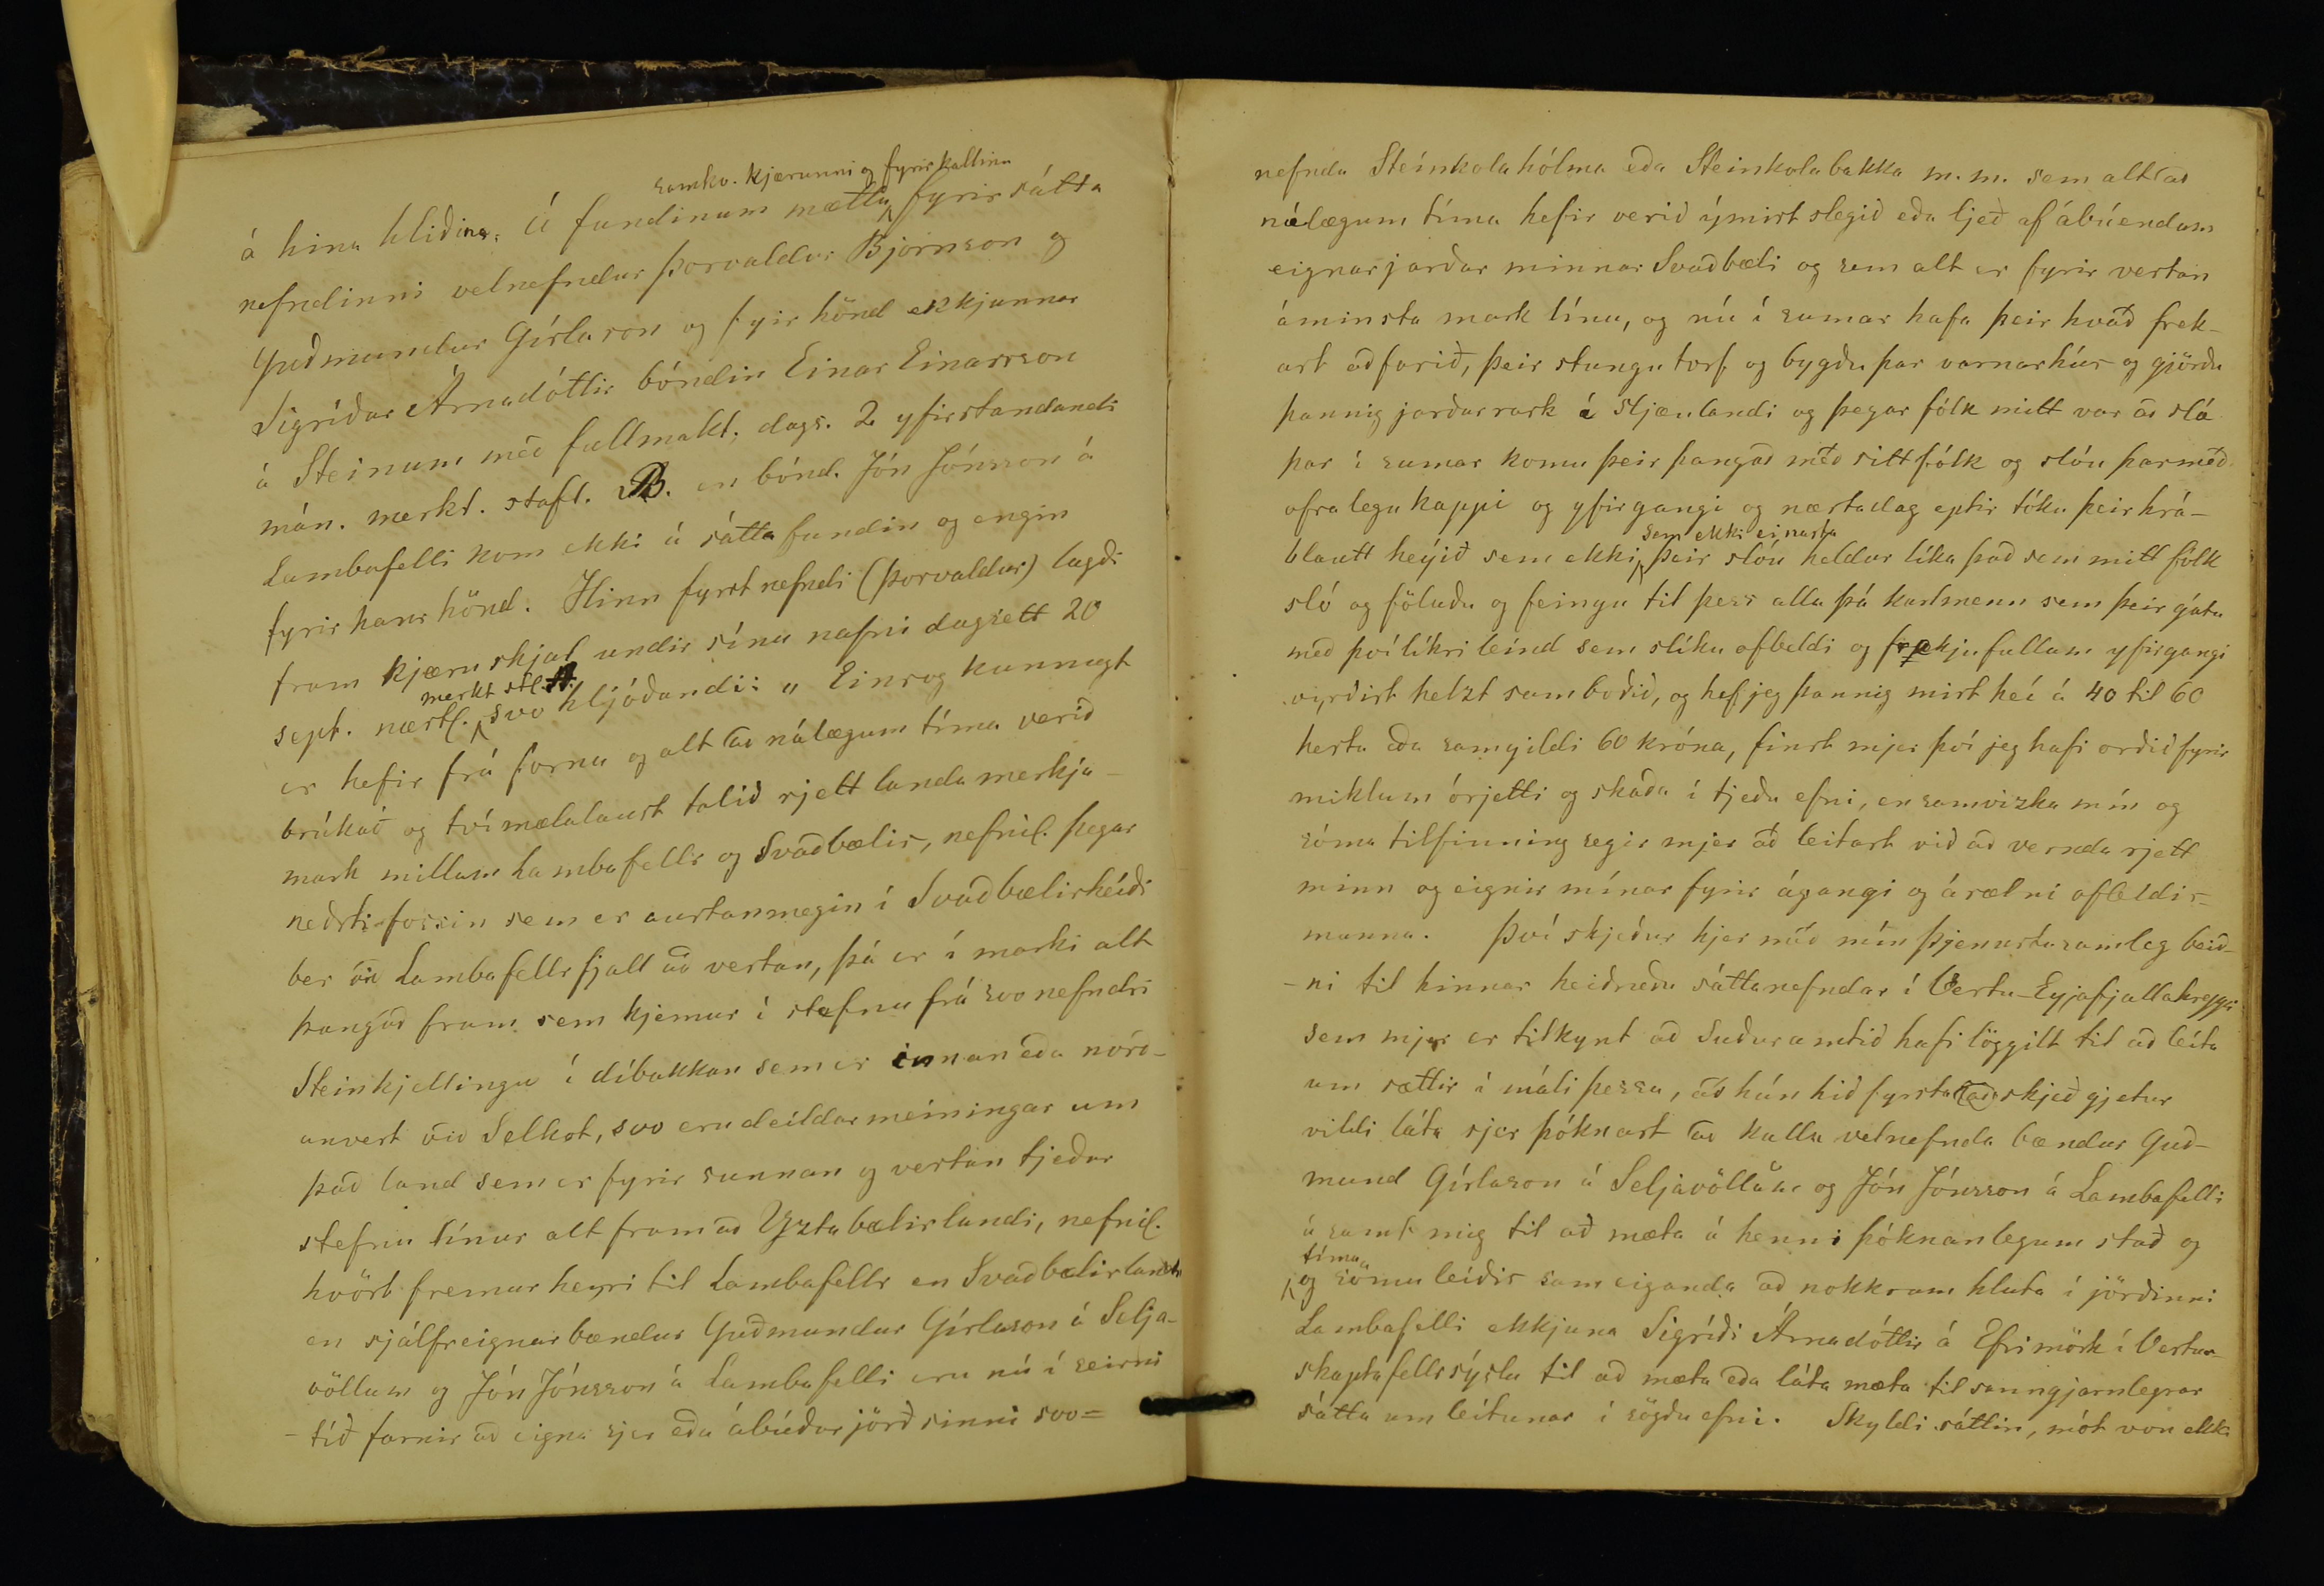 samkv. kjærunni og fyrirkallinu
á hina hliðina. Á fundinum mættu fyrir sátta
nefndinni velnefndur Þorvaldur Björnson og
Guðmundur Gíslason og fyir hönd ekkjunnar
Sigríðar Árnadóttir bóndin Einar Einarsson
á Steinum með fullmakt, dags. 2 yfirstandandi
mán. merkt. staft. B. en bónd. Jón Jónsson á
Lambafelli kom ekki á sátta fundin og engin
fyrir hans hönd. Hinn fyrst nefndi (Þorvaldur) lagði
fram kjæru skjal undir sínu nafni dagsett 20
merkt stl. A.
sept. næstl. svo hljóðandi: „ Eins og kunnugt
er hefir frá fornu og alt að nálægum tíma verið
brúkað og tvímælalaust talið rjett landa merkja-
mark millum Lambafells og Svaðbælis, nefnil. þegar
neðsti-fossin sem er austanmegin í Svaðbælisheiði
ber við Lambafellsfjall að vestan, þá er í marki alt
þangað fram sem kjemur í stefnu frá svo nefndri
Steinkjellingu í díbakkan sem er innan eða nórð-
anvert við Selkot, svo eru deildar meiningar um
það land sem er fyrir sunnan og vestan tjeðar
stefnu línur alt fram að Yztabælislandi, nefnil.
hvört fremur heyri til Lambafells en Svaðbælislandi
en sjálfseignar bændur Guðmundur Gíslason á Selja-
völlum og Jón Jónsson á Lambafelli eru nú í seirni
- tíð farnir að eigna sjer eða ábúðar jörð sinni svo=
nefnda Steinkolahólma eða Steinkolabakka m. m. sem alt að
nálægum tíma hefir verið ýmist slegið eða ljeð af ábúendum
eignarjarðar minnar Svaðbæli og sem alt er fyrir vestan
áminsta mark línu, og nú í sumar hafa þeir hvað frek-
ast aðfarið, þeir stungu torf og bygðu þar varnarhús og gjörðu
þannig jarðarrask á sljæulandi og þegar fólk mitt var að slá
þar í sumar komu þeir þangað með sitt fólk og slóu þar með
ofralegu kappi og yfirgangi og næstadag eptir tóku þeir hrá-
sem ekki einasta
blautt heyið sem ekki þeir slóu heldur líka það sem mitt fólk
sló og föluðu og feingu til þess alla þá karlmenn sem þeir gátu
með því líkri leind sem slíku ofbeldi og frekjufullum yfirgangi
virðist helzt samboðið, og hef jeg þannig mist hei á 40 til 60
hesta eða samgildi 60 króna, finst mjer því jeg hafi orðið fyrir
miklum órjetti og skaða í tjeðu efni, en samvizka mín og
sóma tilfinning segir mjer að leitast við að vernda rjett
minn og eignir mínar fyrir ágangi og áræl ni ofbeldis-
manna. Því skjeður hjer með mín þjenustusamleg beið-
-ni til hinnar heiðruðu sáttanefndar í Vestur-Eyjafjallahreppi
sem mjer er tilkynt að Suðuramtið hafi löggilt til að leita
um sættir í máli þessu, að hún hið fyrsta að skjeð gjetur
vildi láta sjer þóknast að kalla velnefnda bændur Guð-
mund Gíslason á Seljavöllum og Jón Jónsson á Lambafelli
á samt mig til að mæta á henni þóknanlegum stað og
tíma
og sömuleiðis sameiganda að nokkrum hluta í jörðinni
Lambafelli ekkjuna Sigríði Árnadóttir á Efrimörk í Vestur-
skaptafellssýslu til að mæta eða láta mæta til sanngjarnlegrar
sátta umleitunar í sögðu efni. Skyldi sáttin, mót von ekki